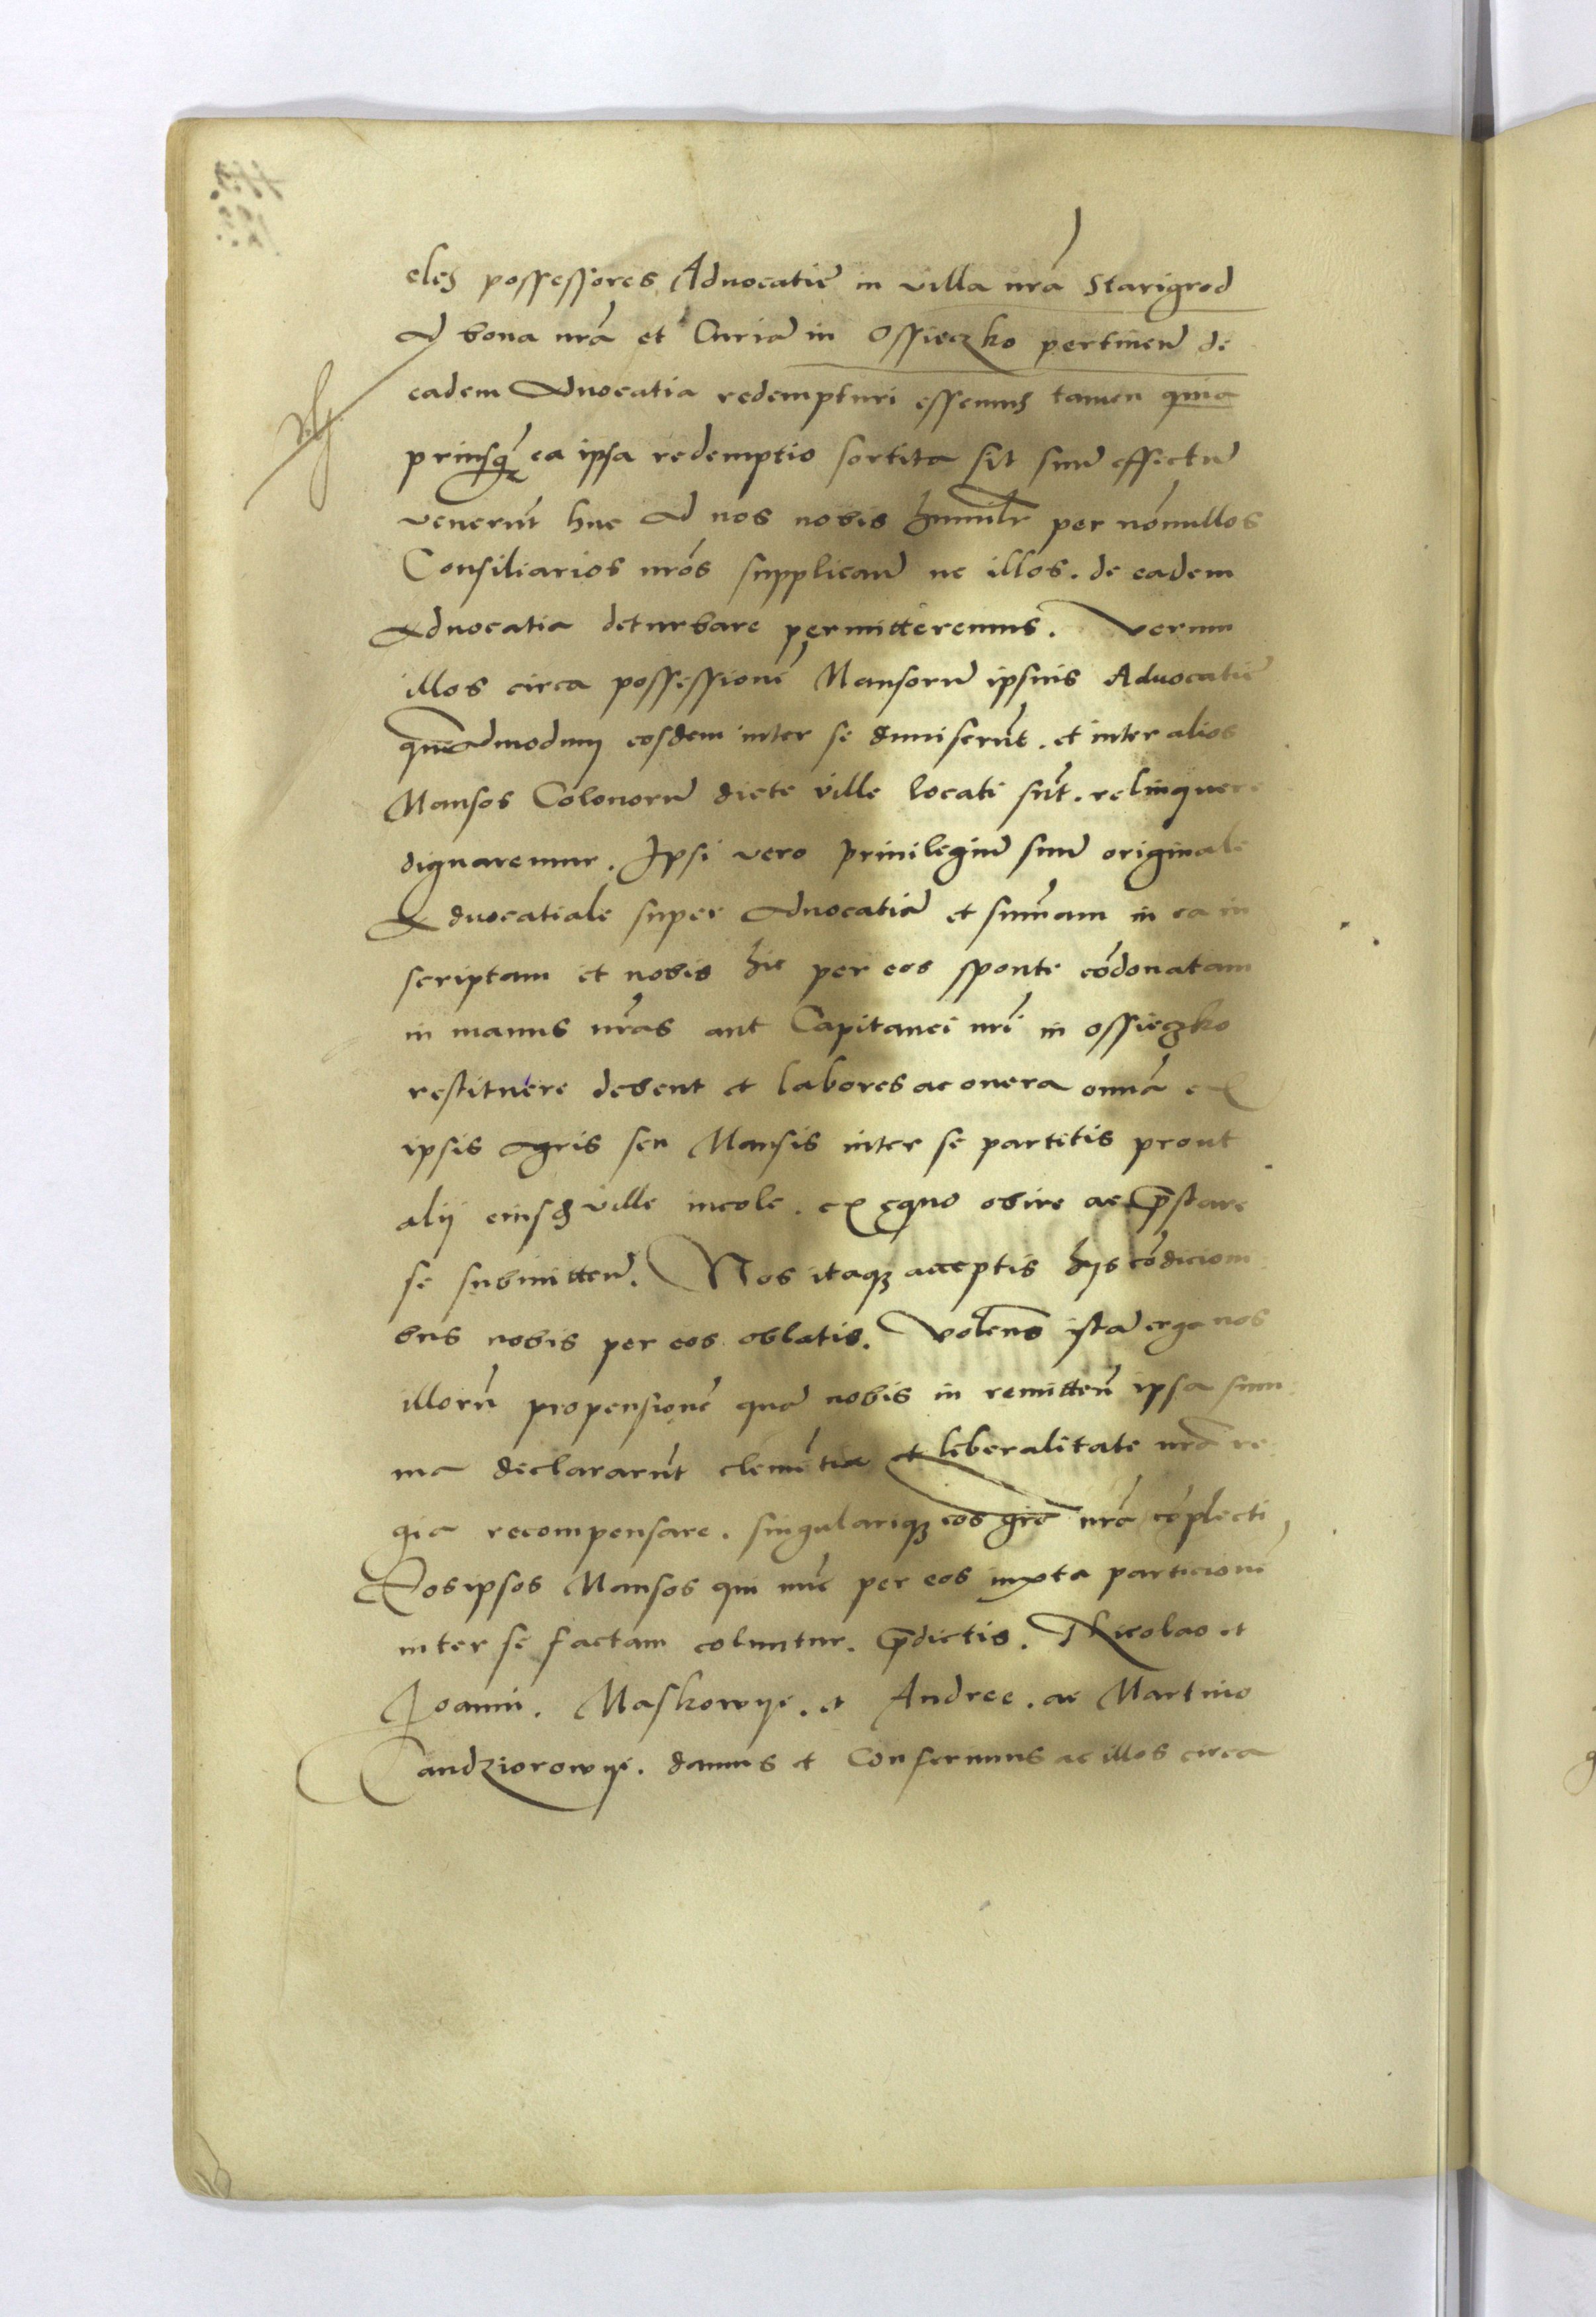 eles possessores Advocatie in villa nrā Starigrod
ad bona nrā et Curiā in Ossieczko pertineñ de
eadem Advocatia redempturi essemus tamen quia
priusq̃ ea ipsa redemptio sortita sit suū effectū
venerūt huc ad nos nobis humilr̄ per nōnullos
Consiliarios nrōs supplicañ ne illos. de eadem
Advocatia deturbare permitteremus. Verum
illos circa possessionē Mansorū ipsius Advocatie
quēadmodum eosdem inter se diuiserūt. et inter alios
Mansos Colonorū dicte ville locati sūt. relinquere
dignaremur. Ipsi vero priuilegiū suū originale
Aduocatiale super Aduocatiā et sūmam in ea in
scriptam et nobis hic per eos sponte cōdonatam
in manus nrās aut Capitanei nrī in ossieczko
restituere debent et labores ac onera omīa ex
ipsis agris seu Mansis inter se partitis prout
alij eiusd ville incole. ex ęquo obire ac p̄stare
se submitteñ. Nos itaqz acceptis hijs cōdicioni
bus nobis per eos oblatis. Volens istā erga nos
illorū propensionē quā nobis in remitteñ ipsa sum
ma declararūt clemētia et liberalitate nrā re
gia recompensare. singulariqz eos grē nrā cōplecti,
Eos ipsos Mansos qui nūc per eos iuxta particionē
inter se factam coluntur. p̄dictis. Nicolao et
Joanni. Maskowye. et Andree. ac Martino
Candziorowye. damus et Conferimus ac illos circa